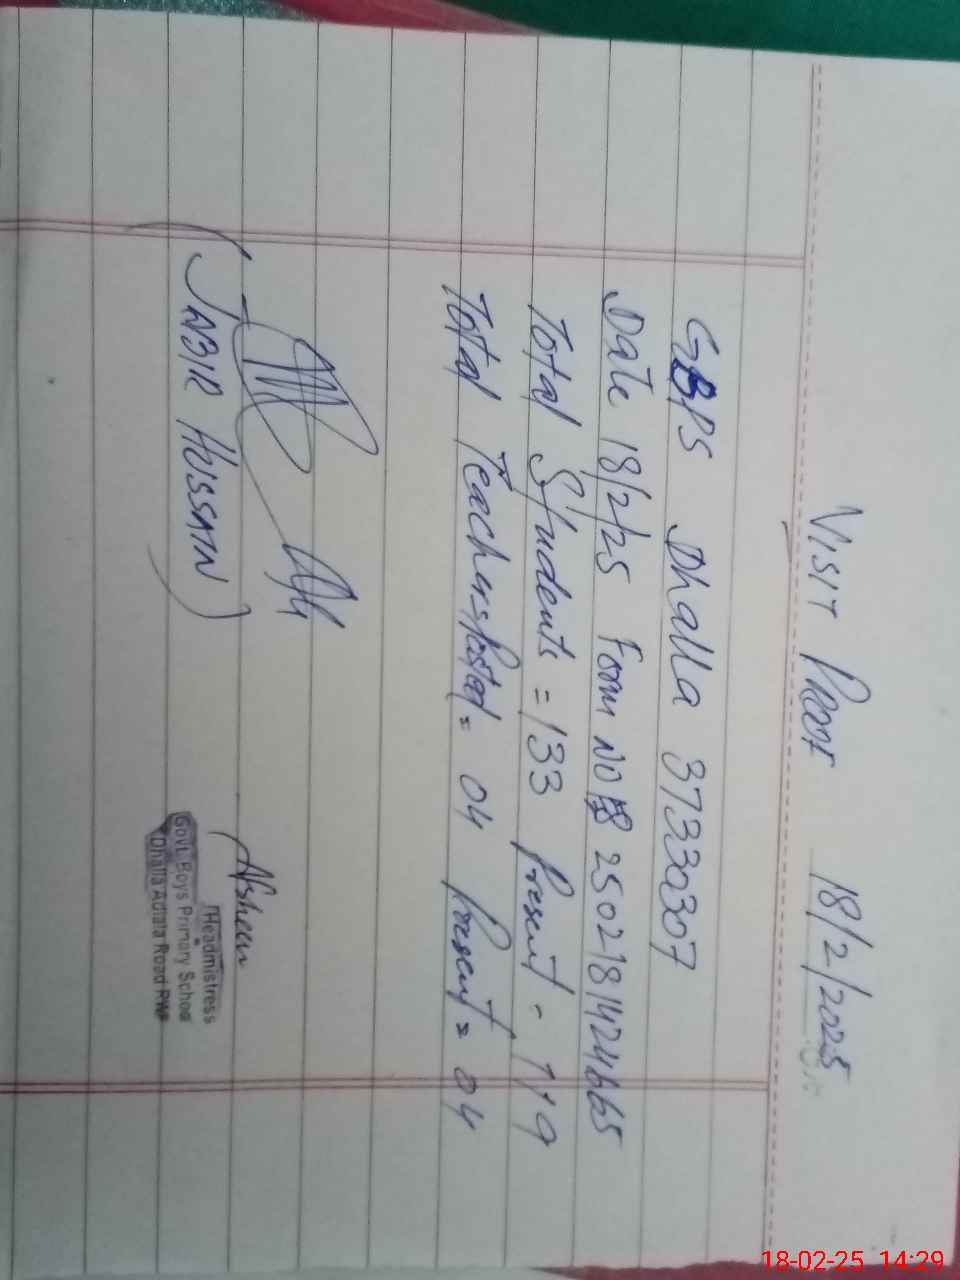 VISIT PROOF 18/2/2025
GBPS Dhalla 37330307
Date 18/2/25 Form NO 2502181424665
Total Students = 133 Present - 119
Total Teachers Posted = 04 Present = 04
(JABIR HUSSAIN)
Afsheen
Headmistress
Govt: Boys Primary School
Dhalla Adiala Road RWP
18-02-25 14:29